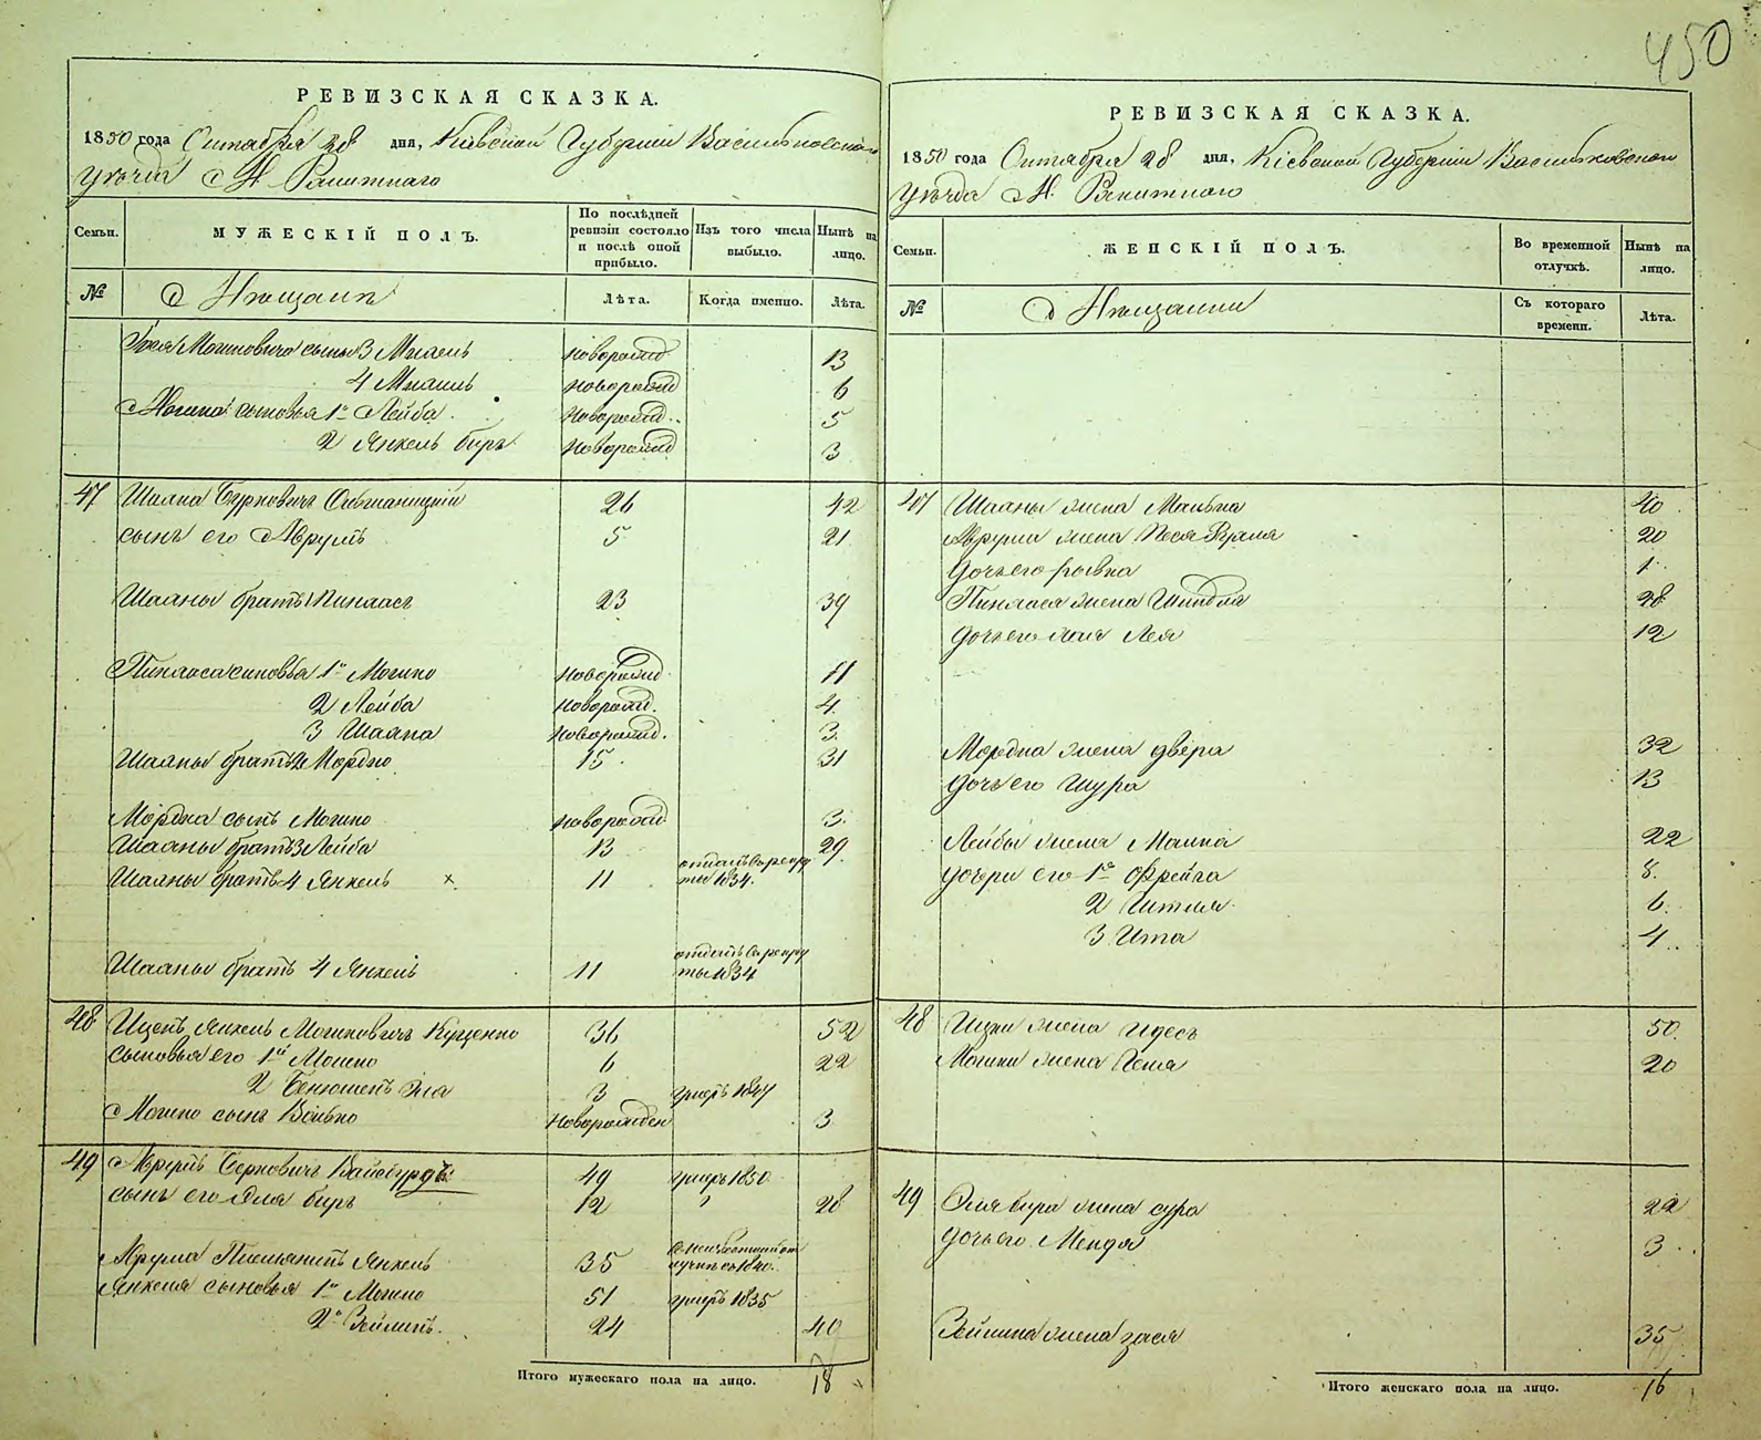 450
РЕВИЗСКАЯ СКАЗКА.
1850 года Октября 28 дня, Кіевской Губерніи Васильковскаго
уѣзда М. Ракитнаго
Семьи. МУЖЕСКІЙ ПОЛЪ. По послѣдней ревизіи состояло и послѣ оной прибыло. Изъ того числа выбыло. Нынѣ на лицо.
№ Мѣщанъ Лѣта. Когда именно. Лѣта.
Мошковича сынъ 3 новорожд 13
4 новорожд 6
Мошка сыновья 1й Лейба новорожд. 5
2 Янкель беръ новорожд 3
47 Шаяна Берковичъ 26 42
сынъ его Аврумъ 5 21
Шаяны братъ 1 Пинхасъ 23 39
Пинхаса сыновья 1й Мошко новорожд 11
2 Лейба новорожд. 4
3 Шаяна новорожд. 3.
Шаяны братъ 2 Мордко 15 31
Мордка сынъ Мошко новорожд 3.
Шаяны братъ 3 Лейба 13 29
Шаяны братъ 4 Янкель х 11 отданъ въ рекруты 1834.
Шаяны братъ 4 Янкель 11 отданъ въ рекруты 1834
48 Ицекъ Янкель Мошковичъ Куценко 36 52
сыновья его 1й Мошко 6 22
2 3 умеръ 1847
Мошко сынъ Волько новорожден 3
49 Аврумъ Берковичъ Вайсбурдъ 49 умеръ 1850
сынъ его Эля беръ 12 " 28
Аврума Племянникъ Янкель 35 1840.
Янкеля сыновья 1й Мошко 51 умеръ 1835
2й Зейликъ. 24 40
Итого мужескаго пола на лицо. 18
РЕВИЗСКАЯ СКАЗКА.
1850 года Октября 28 дня, Кіевской Губерніи Васильковскаго
уѣзда М. Ракитнаго
Семьи. ЖЕНСКІЙ ПОЛЪ. Во временной отлучкѣ. Нынѣ на лицо.
№ Мѣщанки Съ котораго времени. Лѣта.
47 Шаяны жена Малька 40
Аврума жена Песя Фрыма 20
Дочь его Рывка 1
Пинхаса жена Шиндля 28
Дочь его Лея 12
Мордка жена Двера 32
Дочь его Шура 13
Лейбы жена Малка 22
Дочери его 1я Фрейга 8.
2 6.
3 Ита 4
48 Ицка жена Идесъ 50.
Мошки жена 20
49 Эля бера жена Сура 22
Дочь его Менда 3
Зейлика жена Хася 35
Итого женскаго пола на лицо. 16